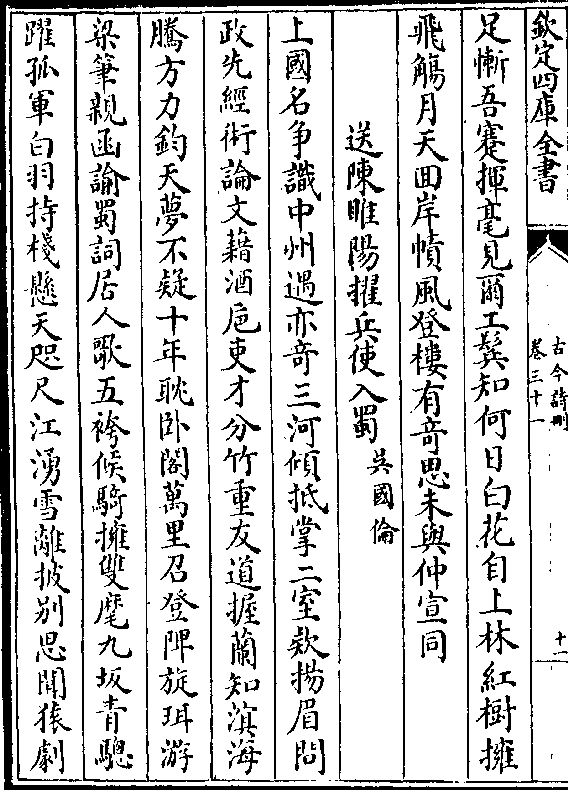 欽定四庫全書
古今詩刪
卷三十一
十一
足慚吾蹇揮毫見爾工鬂知何日白花自上林紅樹擁
飛觴月天囬岸幘風登樓有竒思未與仲宣同
送陳睢陽擢兵使入蜀
吳國倫
上國名爭識中州遇亦竒三河傾抵掌二室欵揚眉問
政先經術論文藉酒巵吏才分竹重友道握蘭知滇海
騰方力鈞天夢不疑十年耽卧閣萬里召登陴旋珥游
梁筆親函諭蜀詞居人歌五袴候騎擁雙麾九坂青驄
躍孤軍白羽持棧懸天咫尺江湧雪離披别思聞猿劇